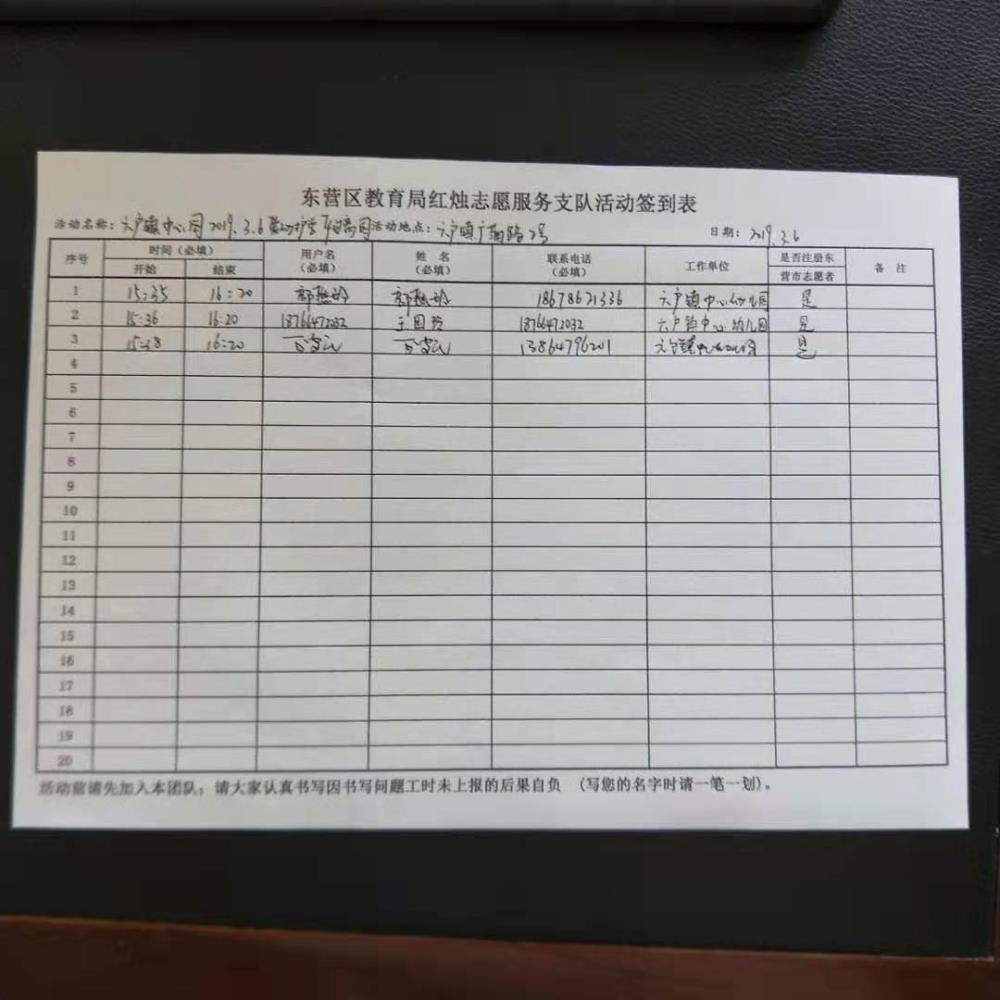 东营区教育局红烛志愿服务支队活动签到表
活动名称：六户镇中心园2019.3.6 离园 活动地点：六户镇广南路2号 日期：2019.3.6
序号 时间（必填） 用户名（必填） 姓 名（必填） 联系电话（必填） 工作单位 是否注册东营市志愿者 备 注
开始 结束
1 15:35 16:20 郭 郭 18678621336 六户镇中心幼儿园 是
2 15:36 16:20 18766472032 王国 18766472032 六户镇中心幼儿园 是
3 15:38 16:20 13864796201 六户镇中心幼儿园 是
4
5
6
7
8
9
10
11
12
13
14
15
16
17
18
19
20
活动前请先加入本团队；请大家认真书写因书写问题工时未上报的后果自负 （写您的名字时请一笔一划）。